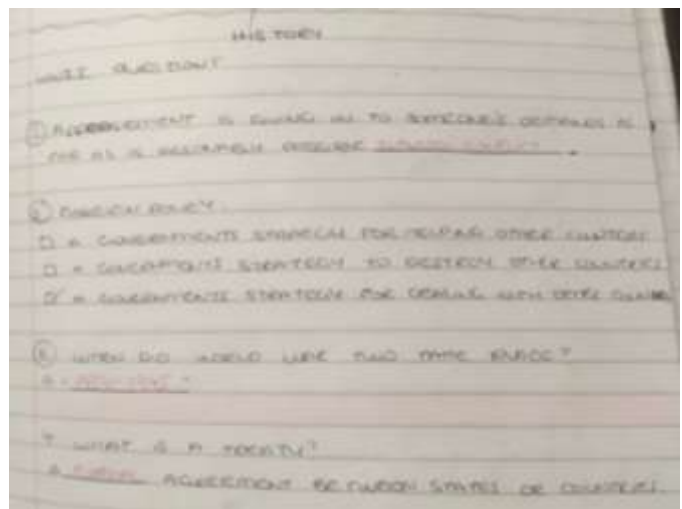 HISTORY
QUESTIONS
① APPEASEMENT IS GIVING IN TO SOMEONE'S DEMANDS AS
FAR AS IS REASONABLY POSSIBLE
② FOREIGN POLICY.
□ A GOVERNMENTS STRATEGY FOR HELPING OTHER COUNTRIES
□ A GOVERNMENTS STRATEGY TO DESTROY OTHER COUNTRIES
A GOVERNMENTS STRATEGY FOR DEALING WITH OTHER
WHEN DID WORLD WAR TWO TAKE PLACE?
WHAT IS A TREATY?
A AGREEMENT BETWEEN STATES OR COUNTRIES.